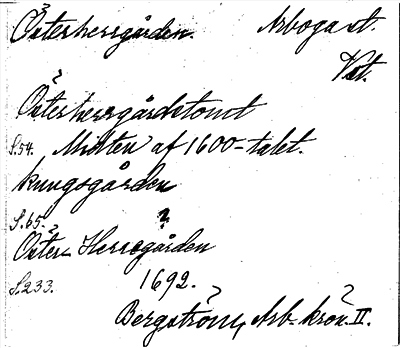 Österherrgården. Arboga st.
Vst.
Österherrgårdstomt
S.54. Midten af 1600-talet.
kungsgården
S.65. ?
Öster Herregården
S.233. 1692.
Bergström, Arb. krön. II.